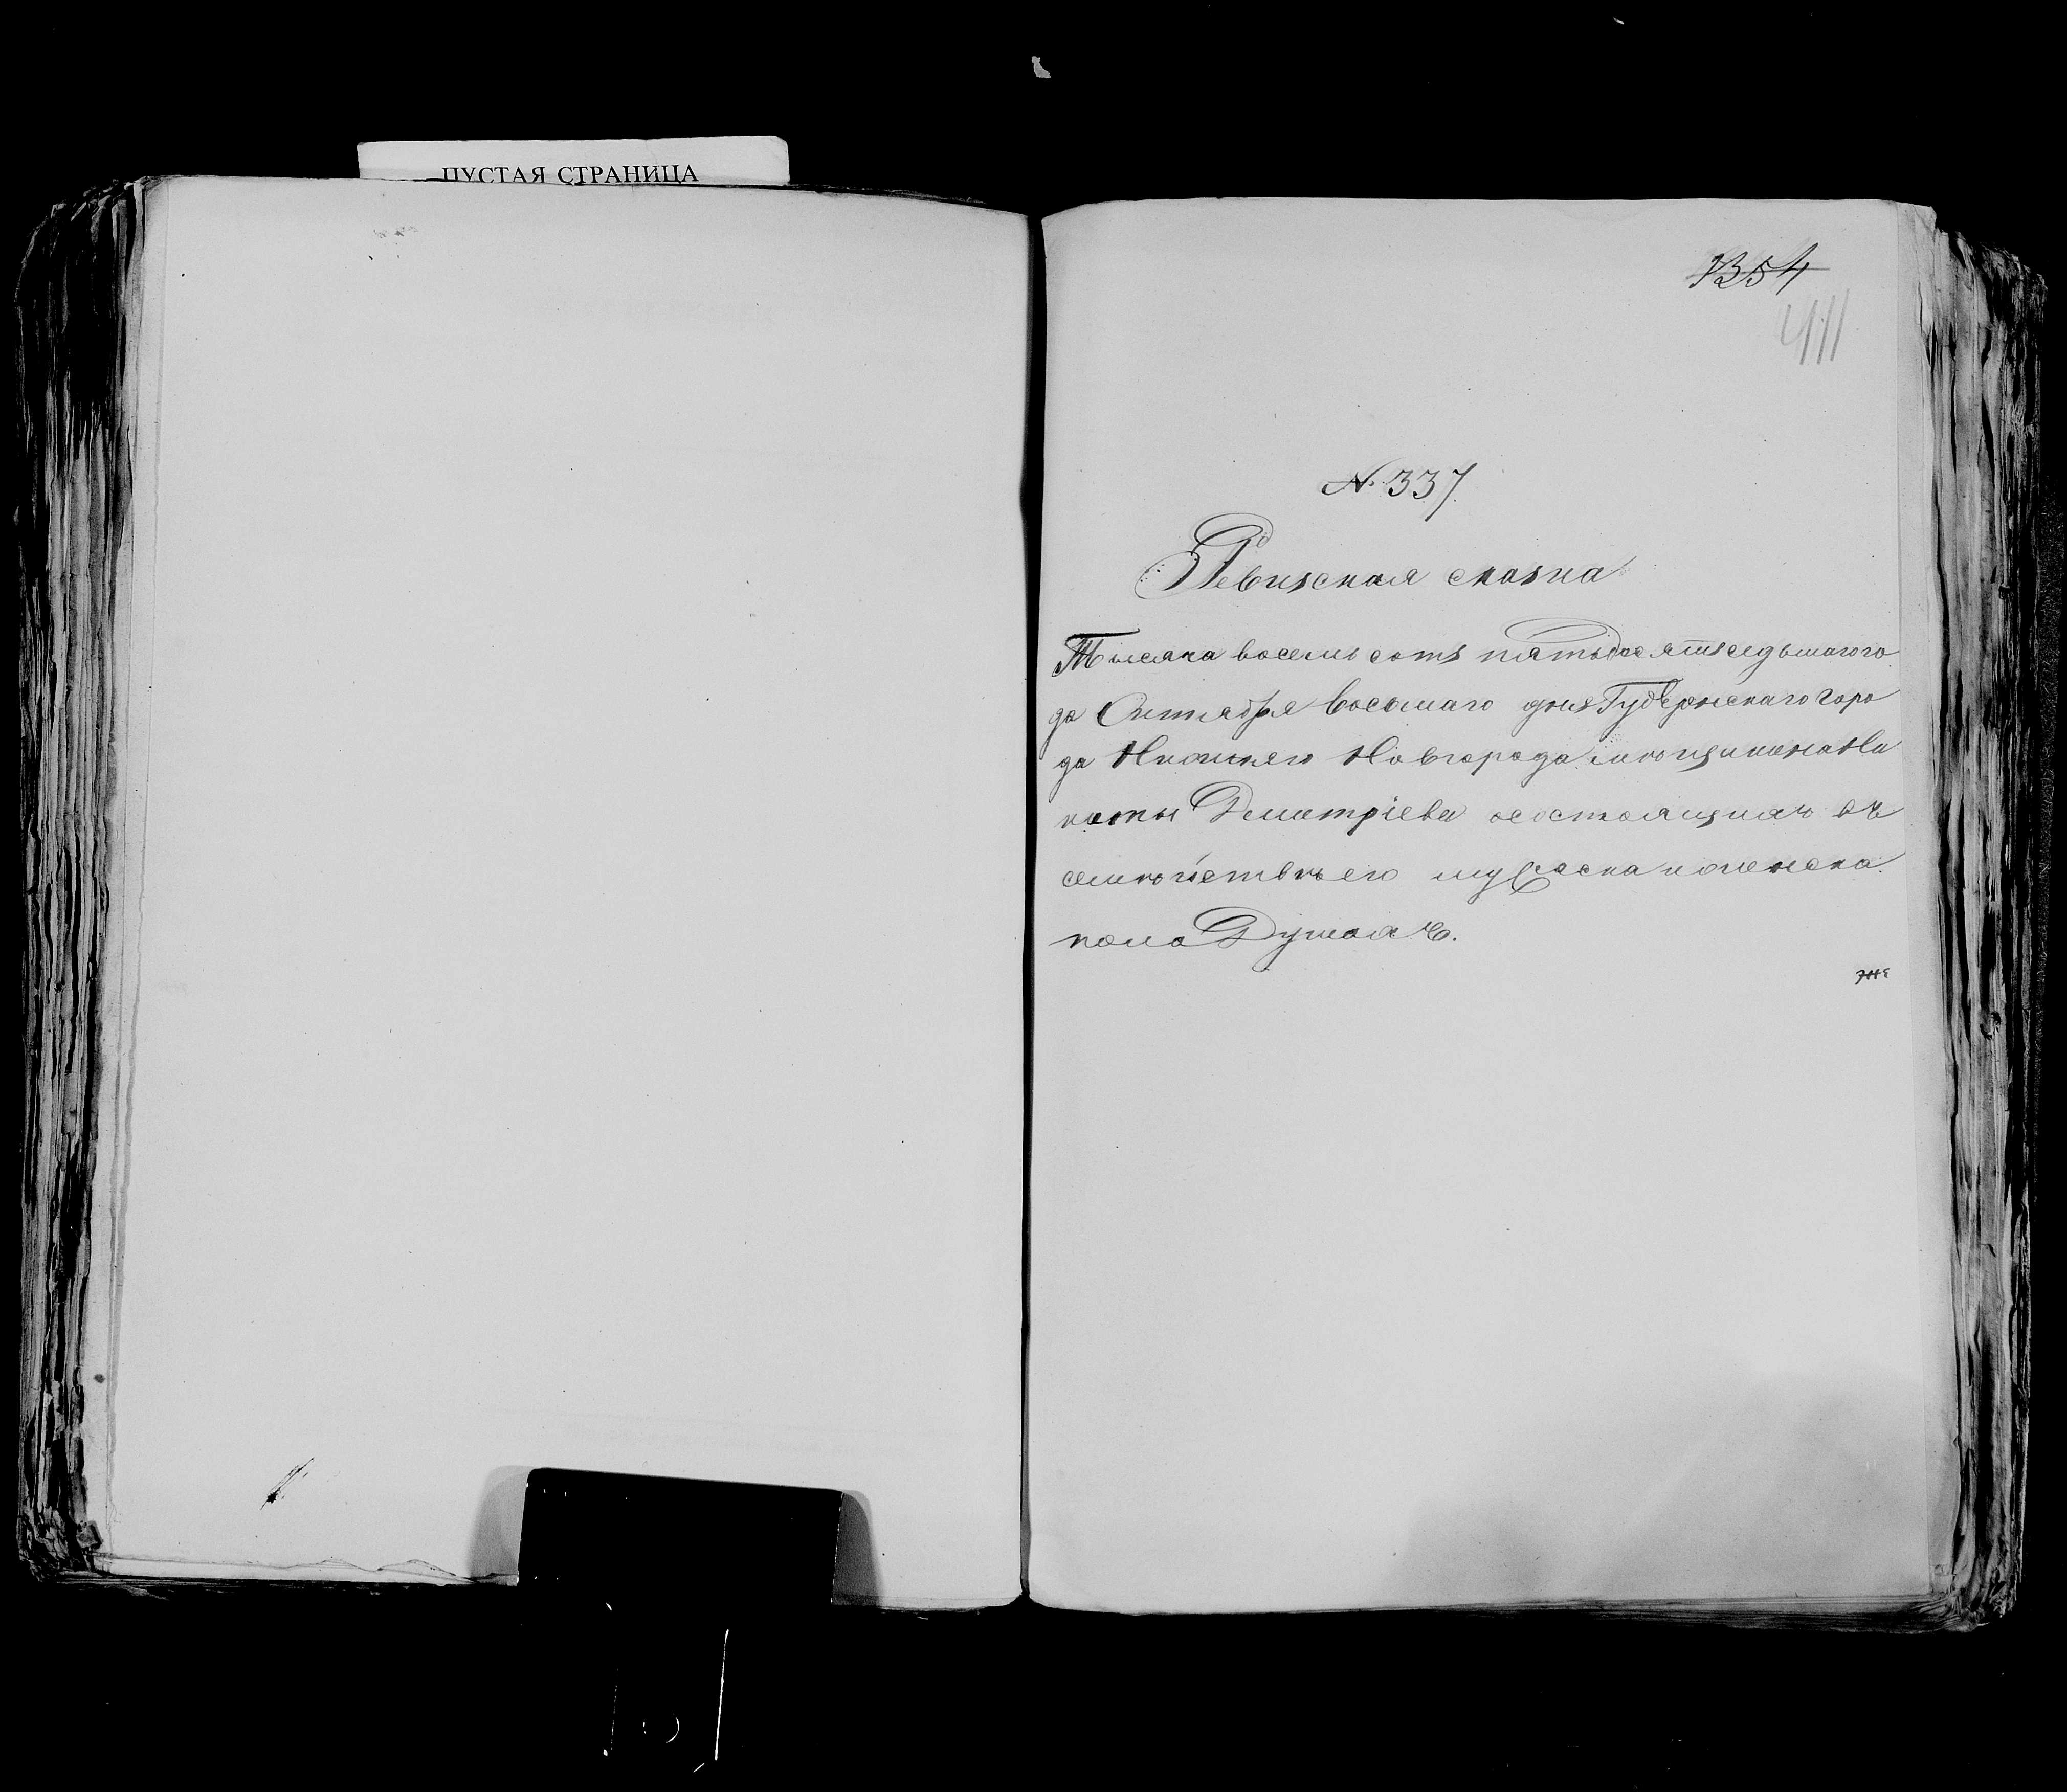 ПУСТАЯ СТРАНИЦА
1354
411
№ 337.
Ревизская сказка
Тысяча восемь сотъ пятьдесятъ седьмаго го
да Октября восьмаго дня Губернскаго горо
да Нижняго Новгорода мѣщанина Ни
киты Дмитріева о состоящихъ въ
семѣйствѣ его мужеска и женска
пола Душахъ.